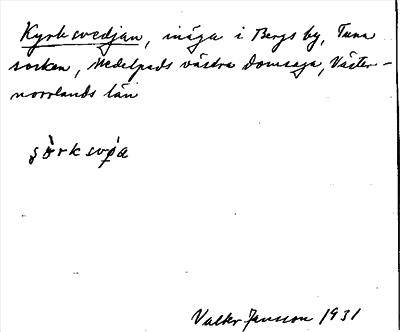 Kyrksvedjan, inäga i Bergs by, Tuna
socken, Medelpads västra domsaga, Väster-
norrlands län
Valter Jansson 1931